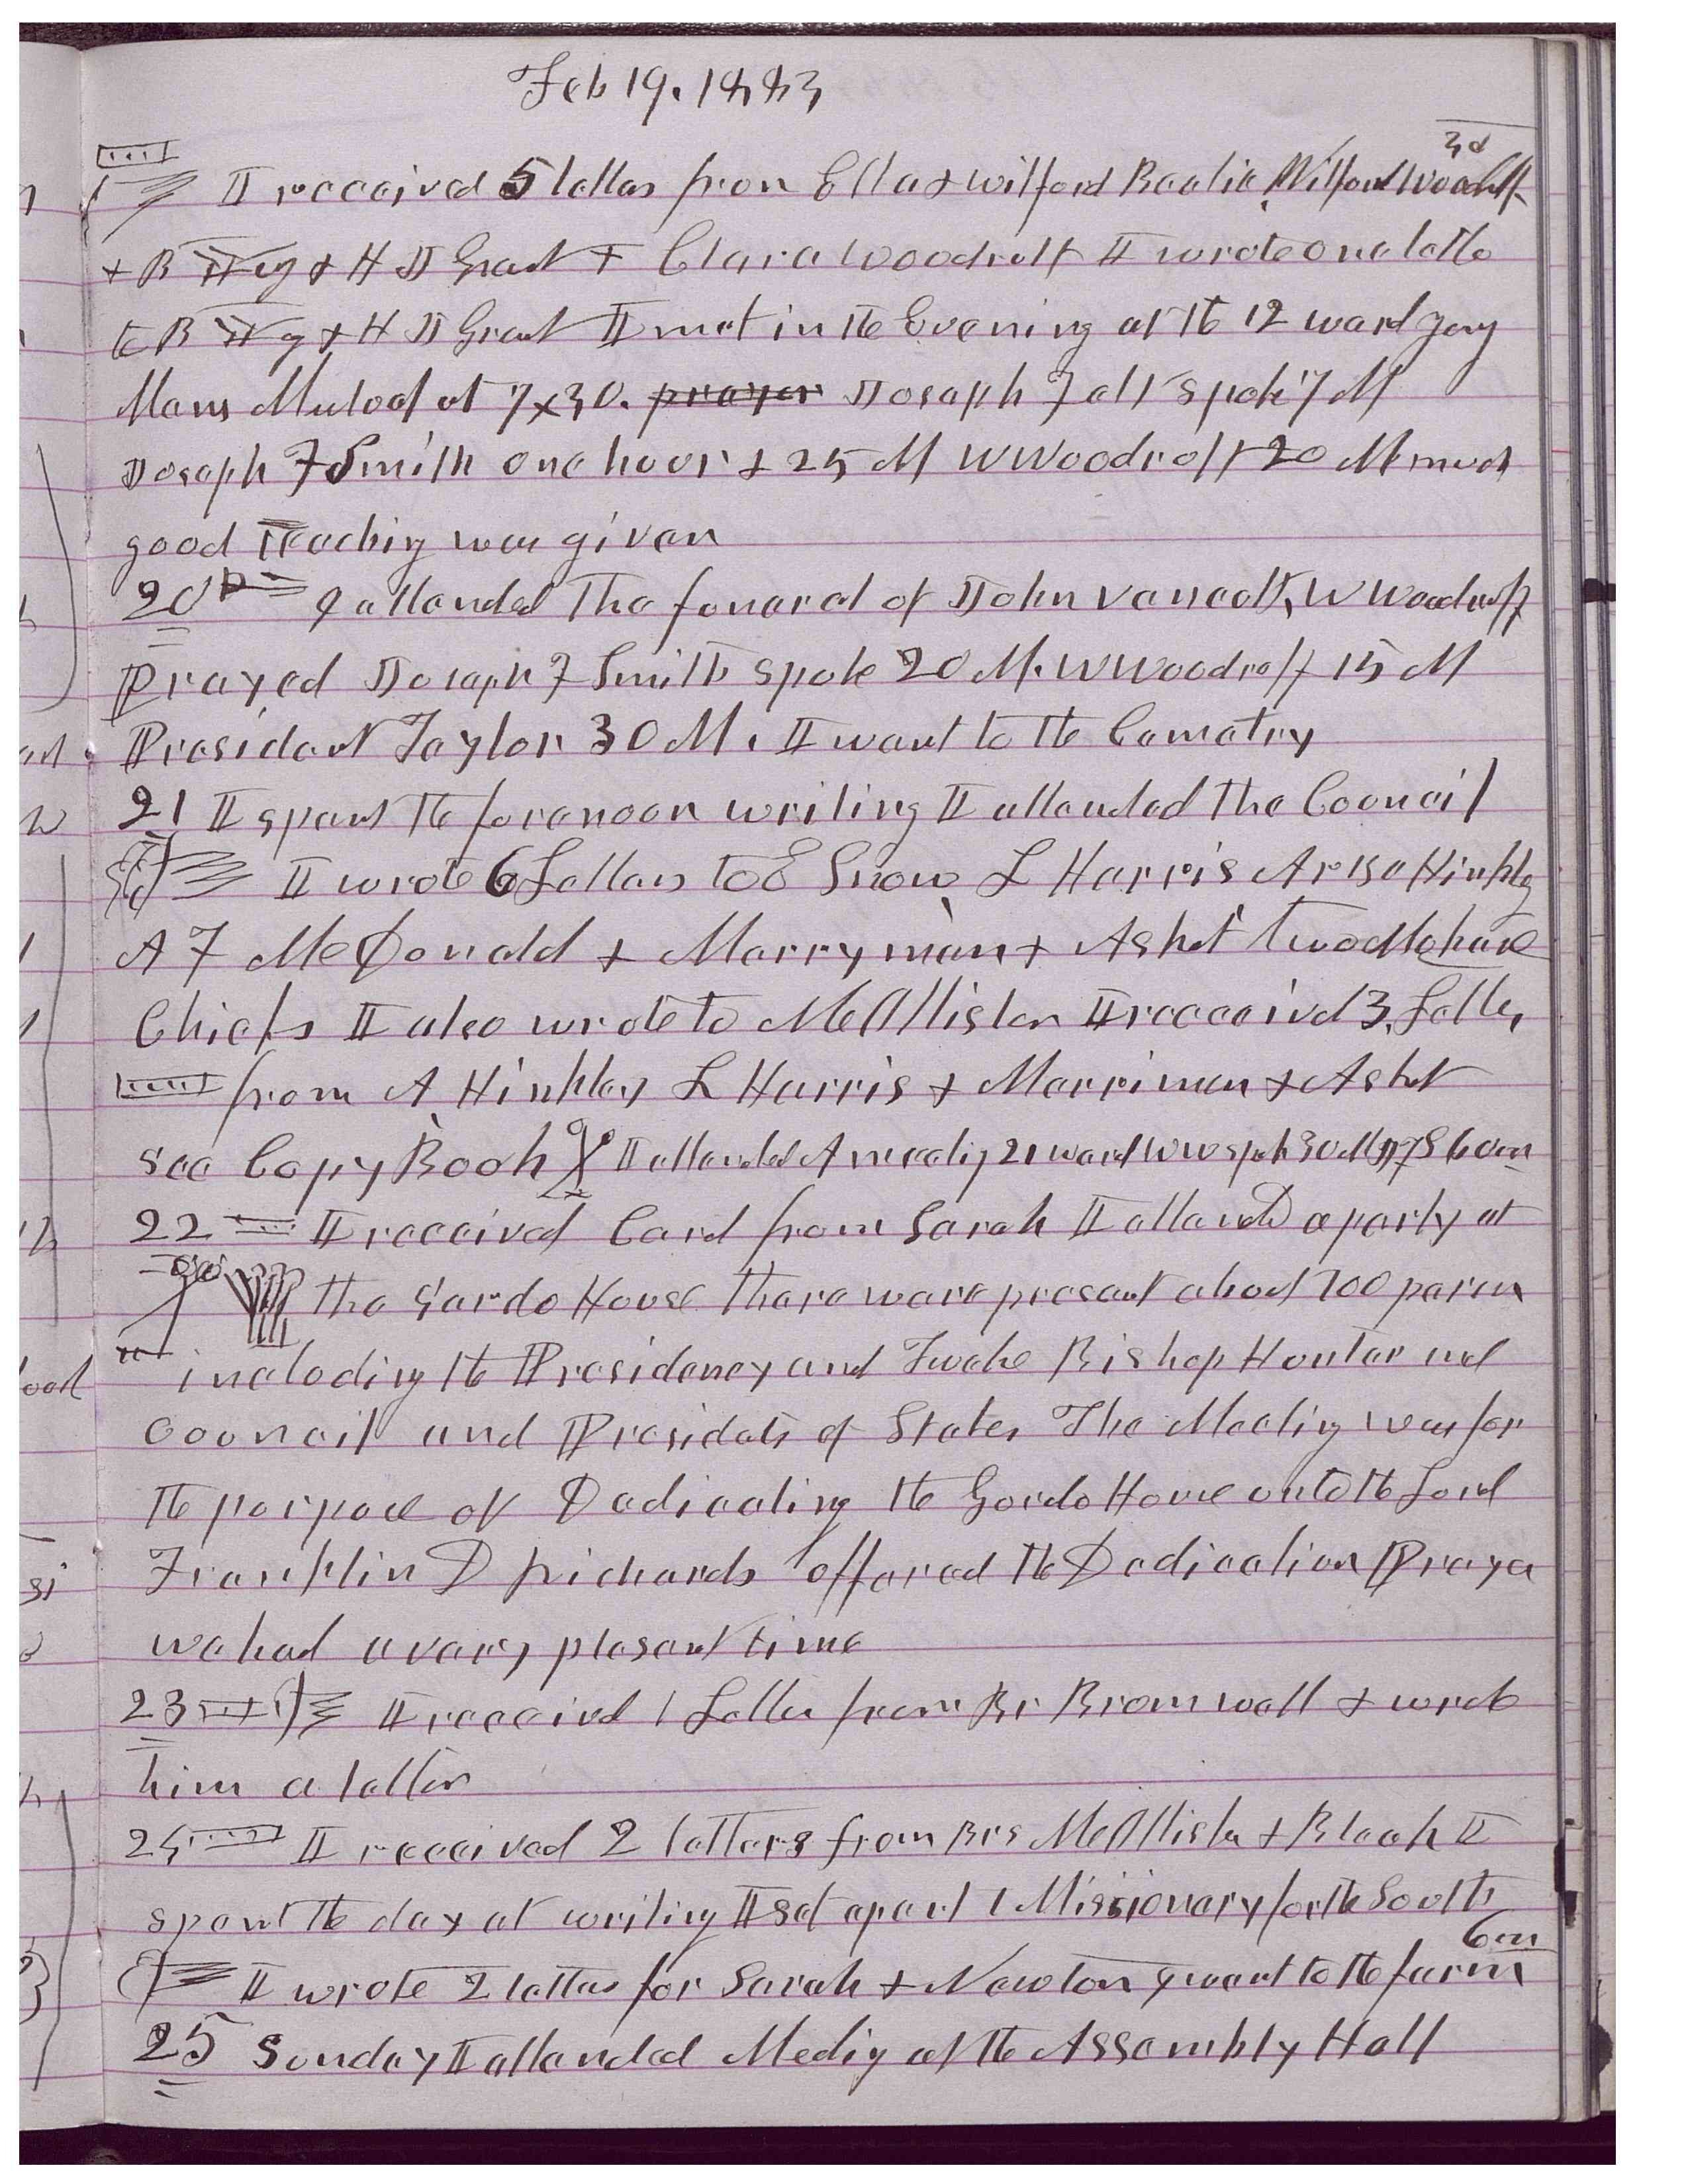 Feb 19. 1883
3d
I received 5 letters from Ella & Wilford Beatie, Wilford Woodruff
& B Y & H J Grant & Clara Woodruff I wrote one letter
to B Y & H J Grant I met in the Evening at the 12 ward yong
Mans Mutual at 7x30. prayer Joseph F all spoke 7 M
Joseph F Smith one hour & 25 M W Woodruff 20 M much
good Teaching was given
20 I attended the funeral of John vancott, W Woodruff
Prayed Joseph F Smith spoke 20 M. W Woodruff 15 M
President Taylor 30 M. I went to the Cemetry
21 I spent the forenoon writing I attended the Council
I wrote 6 Letters to E Snow, L Harris Arza Hinkley
A F McDonald & Marryman & Ashet two Mohave
Chiefs I also wrote to McAllister I receeived 3, Letters,
from A Hinkley L Harris & Marriman & Ashet
see Copy Book I attended A meetig 21 ward WW spok 30 M J F S 60 m
22 I received Card from Sarah I attended a party at
the Gardo House there were present about 100 persons
including the Presidency and Twelve Bishop Hunter and
Council and Presidets of Stakes The Meetig was for
the purpose of Dedicating the Gardo House unto the Lord
Franklin D Richards offered the Dedication Prayer
we had a very plesant time
23 I received 1 Letter from Br Bromwell & wrote
him a letter
24 I received 2 letters from Brs McAllister & Bleak I
spent the day at writing I set apart 1 Missionary for the South
6 m
I wrote 2 letters for Sarah & Newton & went to the farm
25 Sunday I attended Meetig at the Assembly Hall